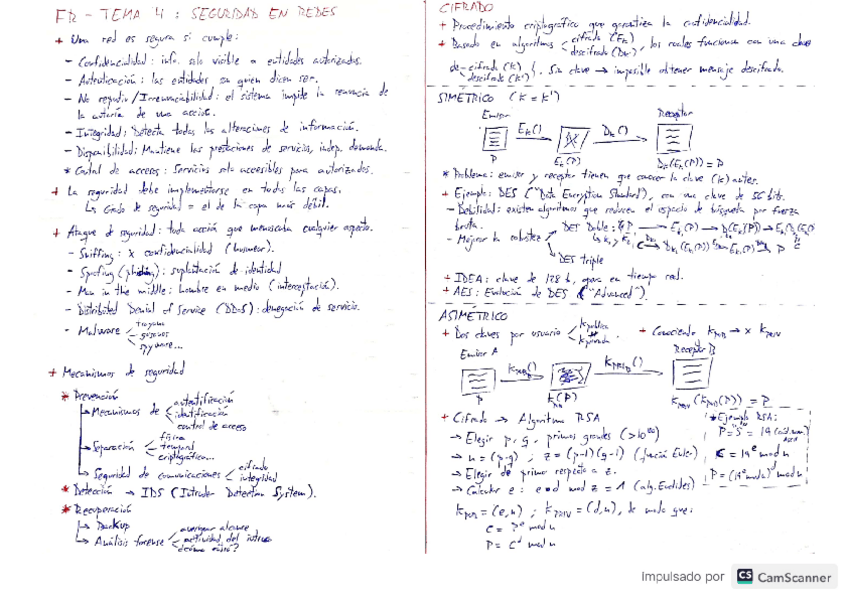 FR - TEMA 4 : SEGURIDAD EN REDES
+ Una red es segura si cumple:
- Confidencialidad: info. solo visible a entidades autorizadas.
- Autenticación: las entidades son quien dicen ser.
- No repudio / Irrenunciabilidad: el sistema impide la renuncia de
la autoría de una acción.
- Integridad: Detecta todas las alteraciones de información.
- Disponibilidad: Mantiene las prestaciones de servicios, indep. demanda.
* Control de accesos: Servicios solo accesibles para autorizados.
+ La seguridad debe implementarse en todas las capas.
↳ Grado de seguridad = el de la capa más débil.
+ Ataque de seguridad: toda acción que menoscaba cualquier aspecto.
- Sniffing: x confidencialidad (husmear).
- Spoofing (phishing): suplantación de identidad
- Man in the middle: hombre en medio (interceptación).
- Distributed Denial of Service (DDoS): denegación de servicio.
- Malware
troyanos
gusanos
spyware...
+ Mecanismos de seguridad
* Prevención
→ Mecanismos de
autentificación
identificación
control de acceso
→ Separación
física
temporal
criptográfica...
→ Seguridad de comunicaciones
cifrado
integridad
* Detección → IDS (Intruder Detection System).
* Recuperación
→ Backup
→ Análisis forense
averiguar alcance
actividad del intruso
¿cómo entró?
CIFRADO
+ Procedimiento criptográfico que garantiza la confidencialidad.
+ Basado en algoritmos
cifrado (Ek)
descifrado (Dk')
, los cuales funcionan con una clave
de
cifrado (k)
descifrado (k')
. Sin clave → imposible obtener mensaje descifrado.
SIMÉTRICO (K = K')
Emisor
Receptor
Ek()
Dk()
P
Ek(P)
Dk(Ek(P)) = P
* Problema: emisor y receptor tienen que conocer la clave (k) antes.
+ Ejemplo: DES ("Data Encryption Standard"), con una clave de 56 bits.
- Debilidad: existen algoritmos que reducen el espacio de búsqueda por fuerza
bruta.
- Mejorar la robustez
DES Doble:
DES triple
+ IDEA: clave de 128 b, opera en tiempo real.
+ AES: Evolución de DES ("Advanced").
ASIMÉTRICO
+ Dos claves por usuario
k pública
k privada.
+ Conociendo kpub → x kpriv
Emisor A
Receptor B
KpubB()
KprivB()
P
kpub(P)
kpriv(kpub(P)) = P
+ Cifrado → Algoritmo RSA
→ Elegir p, q, primos grandes (>10¹⁰⁰)
→ n = (p·q) ; z = (p-1)(q-1) (función Euler)
→ Elegir d primo respecto a z.
→ Calcular e: e·d mod z = 1 (alg. Euclides)
kpub = (e, n) ; kpriv = (d, n), de modo que:
C = Pᵉ mod n
P = Cᵈ mod n
* Ejemplo RSA:
C = 19ᵉ mod n
P = (19ᵉ mod n)ᵈ mod n
Impulsado por CS CamScanner